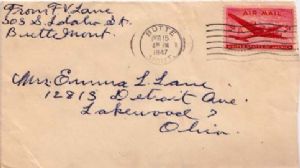 From F V Lane
303 S. Idaho St.
Butte Mont.
BUTTE
15
1947
MONT.
AIR MAIL
UNITED STATES OF AMERICA
Mrs. Emma L. Lane
12813 Detroit Ave.
Lakewood 7
Ohio.